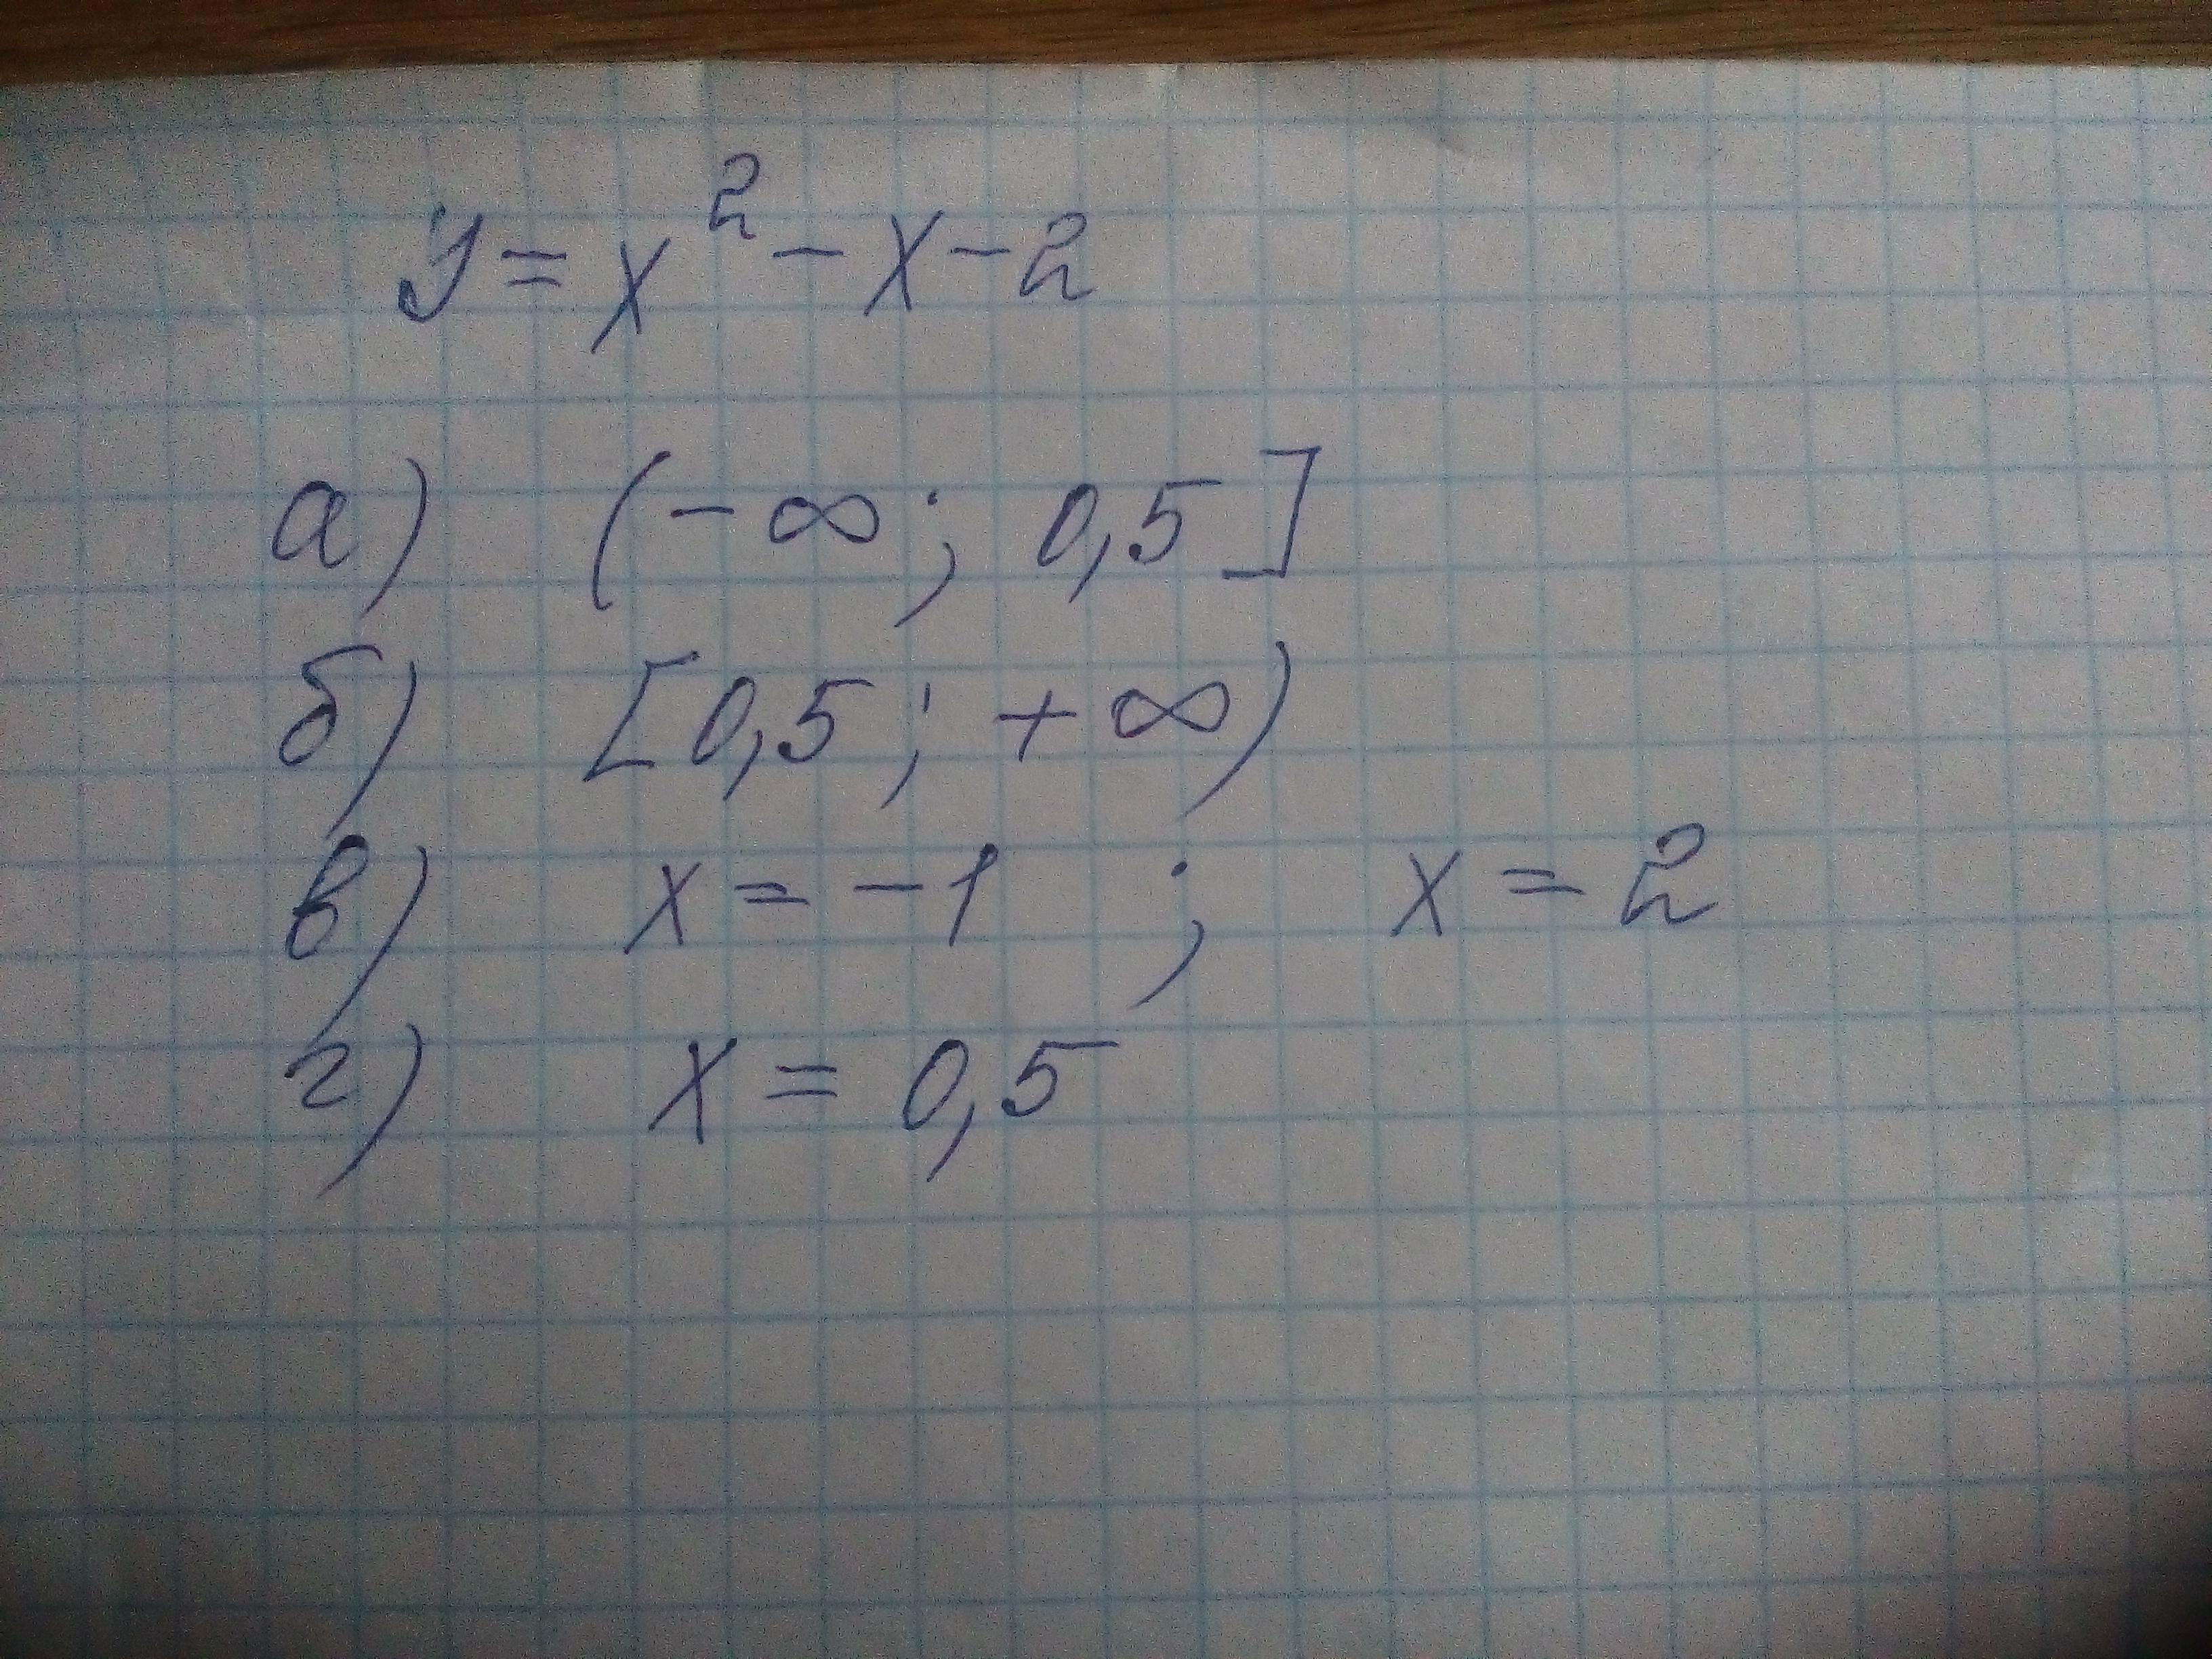 y = x² - x - 2
а) (-∞; 0,5]
б) [0,5; +∞)
в) x = -1 ; x = 2
г) x = 0,5